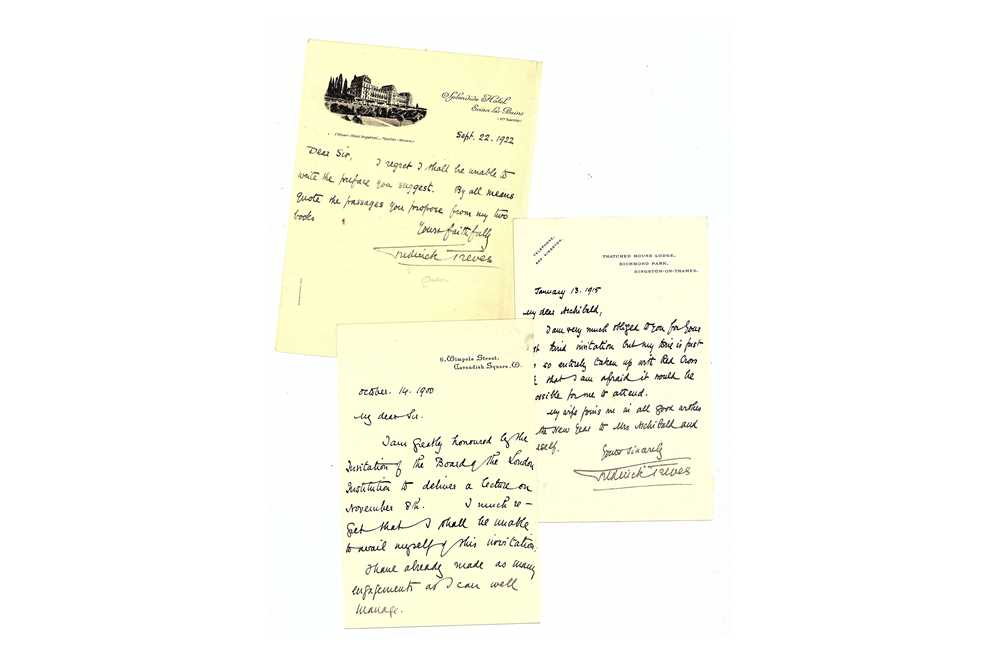 Splendide Hôtel
Evian-les-Bains
Sept. 22. 1922
Dear Sir, I regret I shall be unable to
write the preface you suggest. By all means
quote the passages you propose from my two
books
Yours faithfully
Frederick Treves
TELEPHONE,
KINGSTON.
THATCHED HOUSE LODGE,
RICHMOND PARK,
KINGSTON-ON-THAMES.
January 13. 1915
My dear Archibald,
I am very much obliged to you for your
kind invitation but my time is just
so entirely taken up with Red Cross
that I am afraid it would be
ossible for me to attend.
My wife joins me in all good wishes
the New Year to Mrs Archibald and
rself.
Yours sincerely
Frederick Treves
6, Wimpole Street,
Cavendish Square, W.
October. 14. 1900
My dear Sir.
I am greatly honoured by the
Invitation of the Board of the London
Institution to deliver a lecture on
November 8th. I much re-
gret that I shall be unable
to avail myself of this invitation.
I have already made as many
engagements as I can well
manage.